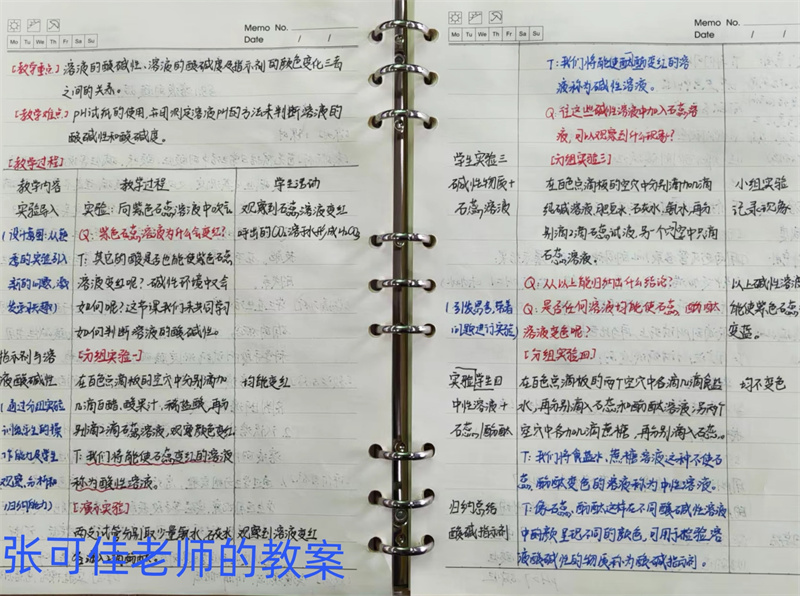 Memo No.
Mo Tu We Th Fr Sa Su
Date / /
[教学重点] 溶液的酸碱性、溶液的酸碱度及指示剂的颜色变化三者
之间的关系。
[教学难点] pH试纸的使用,并用测定溶液pH的方法来判断溶液的
酸碱性和酸碱度。
[教学过程]
教学内容 教学过程 学生活动
实验导入 实验:向紫色石蕊溶液中吹气 观察到石蕊溶液变红
Q:紫色石蕊溶液为什么会变红? 呼出的CO₂溶于水形成H₂CO₃
T:其它的酸是否也能使紫色石蕊
溶液变红呢?碱性环境中又会
如何呢?这节课我们来共同学习
如何判断溶液的酸碱性。
指示剂与溶 [分组实验一]
液酸碱性 在白色点滴板的空穴中分别滴加 均能变红
几滴白醋、酸果汁、稀盐酸,再分
别滴2滴石蕊溶液,观察颜色变化
T:我们将能使石蕊变红的溶液
称为酸性溶液。
[演示实验]
两支试管分别取少量氨水、石灰水 观察到溶液变红
张可佳老师的教案
Memo No.
Mo Tu We Th Fr Sa Su
Date / /
T:我们将能使酚酞变红的溶
液称为碱性溶液。
Q:往这些碱性溶液中加入石蕊溶
液,可以观察到什么现象?
学生实验三 [分组实验三]
碱性物质+ 在白色点滴板的空穴中分别滴加几滴 小组实验
石蕊溶液 纯碱溶液、肥皂水、石灰水、氨水,再分 记录现象
别滴2滴石蕊试液,另一个空穴中只滴
石蕊溶液。
Q:从以上能归纳出什么结论? 以上碱性溶液
(引发思考,带着 Q:是否任何溶液均能使石蕊、酚酞 能使紫色石蕊
问题进行实验) 溶液变色呢? 变蓝。
[分组实验四]
实验学生四 在白色点滴板的两个空穴中各滴几滴食盐 均不变色
中性溶液+ 水,再分别滴入石蕊和酚酞溶液;另两个
石蕊/酚酞 空穴中各加几滴蔗糖,再分别滴入石蕊。
T:我们将食盐水、蔗糖溶液这种不使石
蕊、酚酞变色的溶液称为中性溶液。
归纳总结 T:像石蕊、酚酞这样在不同酸碱性溶液
酸碱指示剂 中的能呈现不同的颜色,可用于检验溶
液酸碱性的物质称为酸碱指示剂。